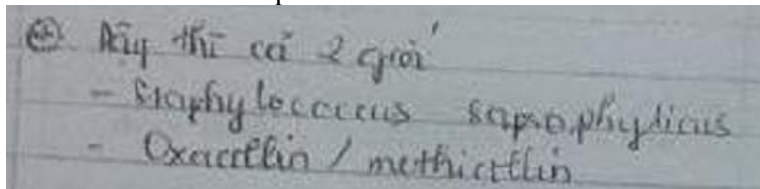 Dậy thì cả 2 giới
- Staphylococcus saprophyticus
- Oxacillin / methicillin